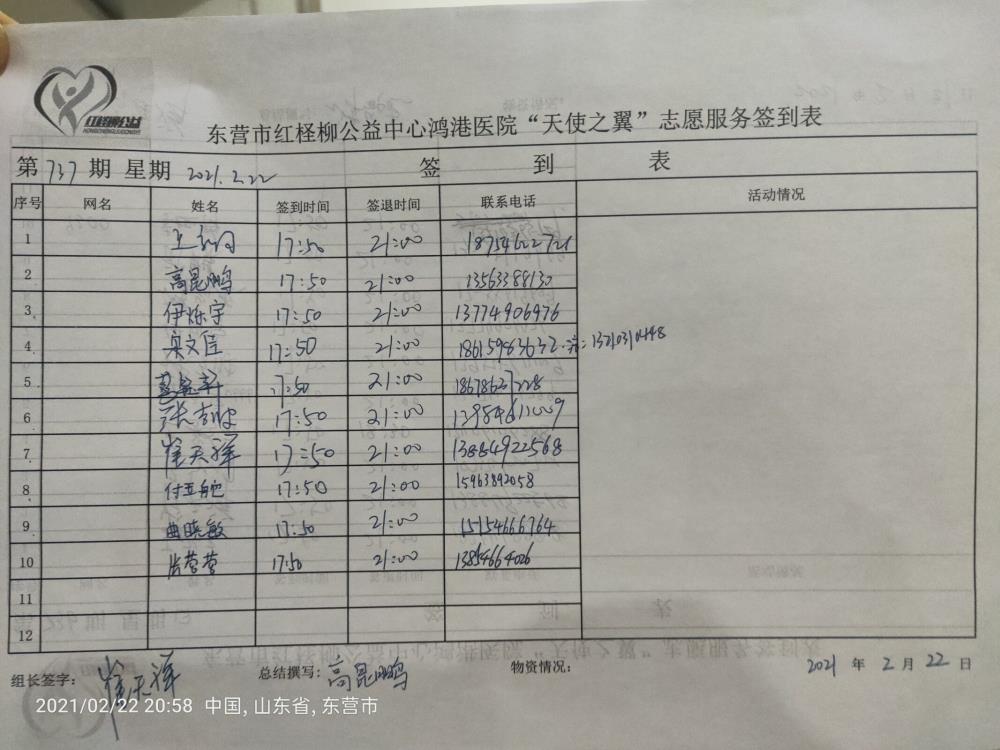 红柽柳公益
东营市红柽柳公益中心鸿港医院“天使之翼”志愿服务签到表
第 737 期 星期 2021.2.22 签 到 表
序号 网名 姓名 签到时间 签退时间 联系电话 活动情况
1 17:50 21:00 18754622721
2 高昆鹏 17:50 21:00 13563388130
3 伊烁宇 17:50 21:00 13774906976
4 17:50 21:00 18615983632 13210310448
5 17:50 21:00 18678627228
6 17:50 21:00
7 崔天祥 17:50 21:00 13884922568
8 17:50 21:00 15963892058
9 曲晓敏 17:50 21:00 15154666764
10 营营 17:50 21:00 13854664026
11
12
组长签字: 崔天祥 总结撰写: 高昆鹏 物资情况: 2021 年 2 月 22 日
2021/02/22 20:58 中国, 山东省, 东营市